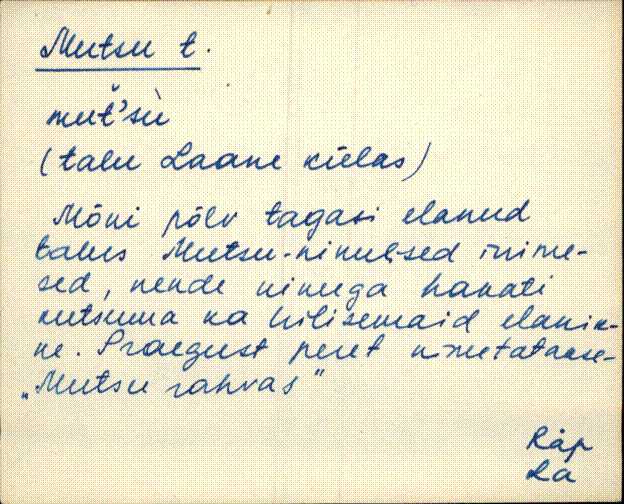 Mutsu t.
mut̆'sù
(talu Laane külas)
Mõni põlv tagasi elanud
talus Mutsu-nimelised inime-
sed, nende nimega hakati
kutsuma ka hilisemaid elanik-
ke. Praegust peret nimetatakse
„Mutsu rahvas"
Räp
La